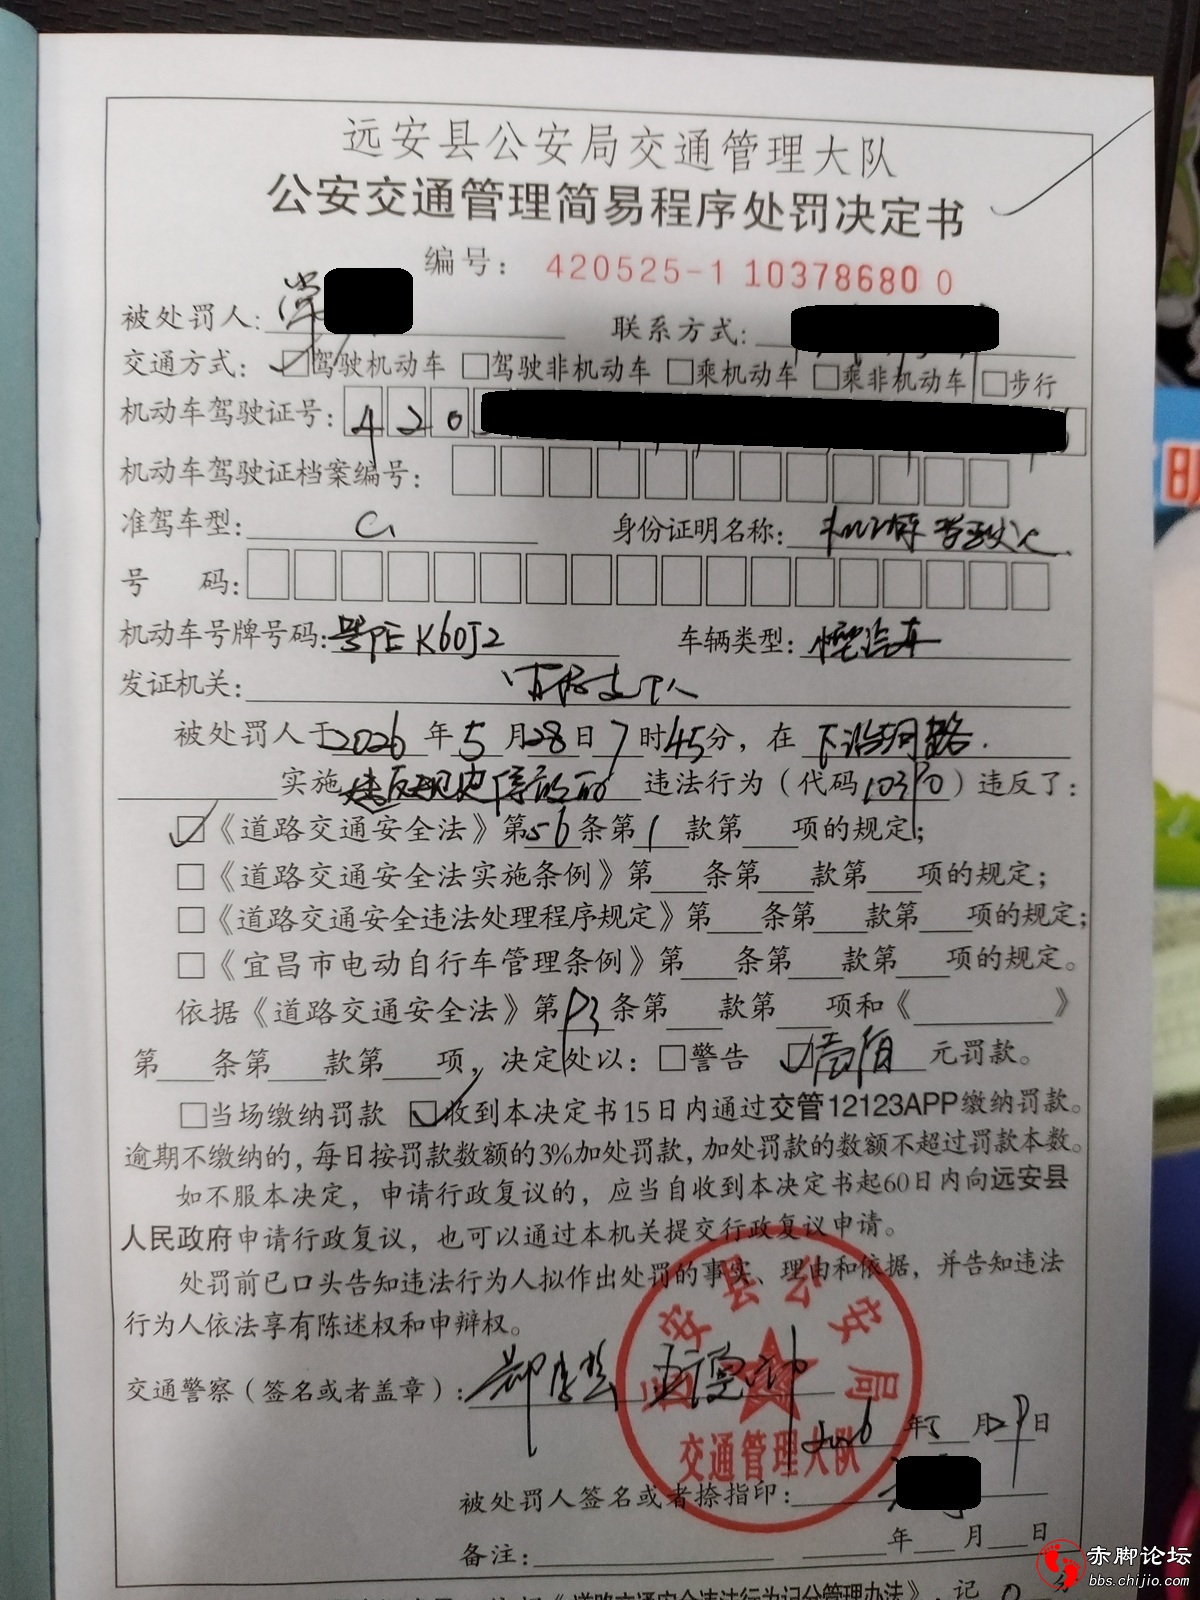 远安县公安局交通管理大队
公安交通管理简易程序处罚决定书
编号： 420525-1 10378680 0
被处罚人： 联系方式：
交通方式：☑驾驶机动车 □驾驶非机动车 □乘机动车 □乘非机动车 □步行
机动车驾驶证号：420
机动车驾驶证档案编号：
准驾车型： C1 身份证明名称：
号 码：
机动车号牌号码：鄂PEK60J2 车辆类型：小型汽车
发证机关：
被处罚人于2026年5月28日7时45分，在
实施违反规定停放的违法行为（代码10390）违反了：
☑《道路交通安全法》第56条第1款第 项的规定；
□《道路交通安全法实施条例》第 条第 款第 项的规定；
□《道路交通安全违法处理程序规定》第 条第 款第 项的规定；
□《宜昌市电动自行车管理条例》第 条第 款第 项的规定。
依据《道路交通安全法》第93条第 款第 项和《 》
第 条第 款第 项，决定处以：□警告 ☑壹佰元罚款。
□当场缴纳罚款 ☑收到本决定书15日内通过交管12123APP缴纳罚款。
逾期不缴纳的，每日按罚款数额的3%加处罚款，加处罚款的数额不超过罚款本数。
如不服本决定，申请行政复议的，应当自收到本决定书起60日内向远安县
人民政府申请行政复议，也可以通过本机关提交行政复议申请。
处罚前已口头告知违法行为人拟作出处罚的事实、理由和依据，并告知违法
行为人依法享有陈述权和申辩权。
远安县公安局
交通警察（签名或者盖章）：
交通管理大队
2026年5月29日
被处罚人签名或者捺指印：
年 月 日
备注：
《道路交通安全违法行为记分管理办法》，记 0 分
赤脚论坛
bbs.chijio.com